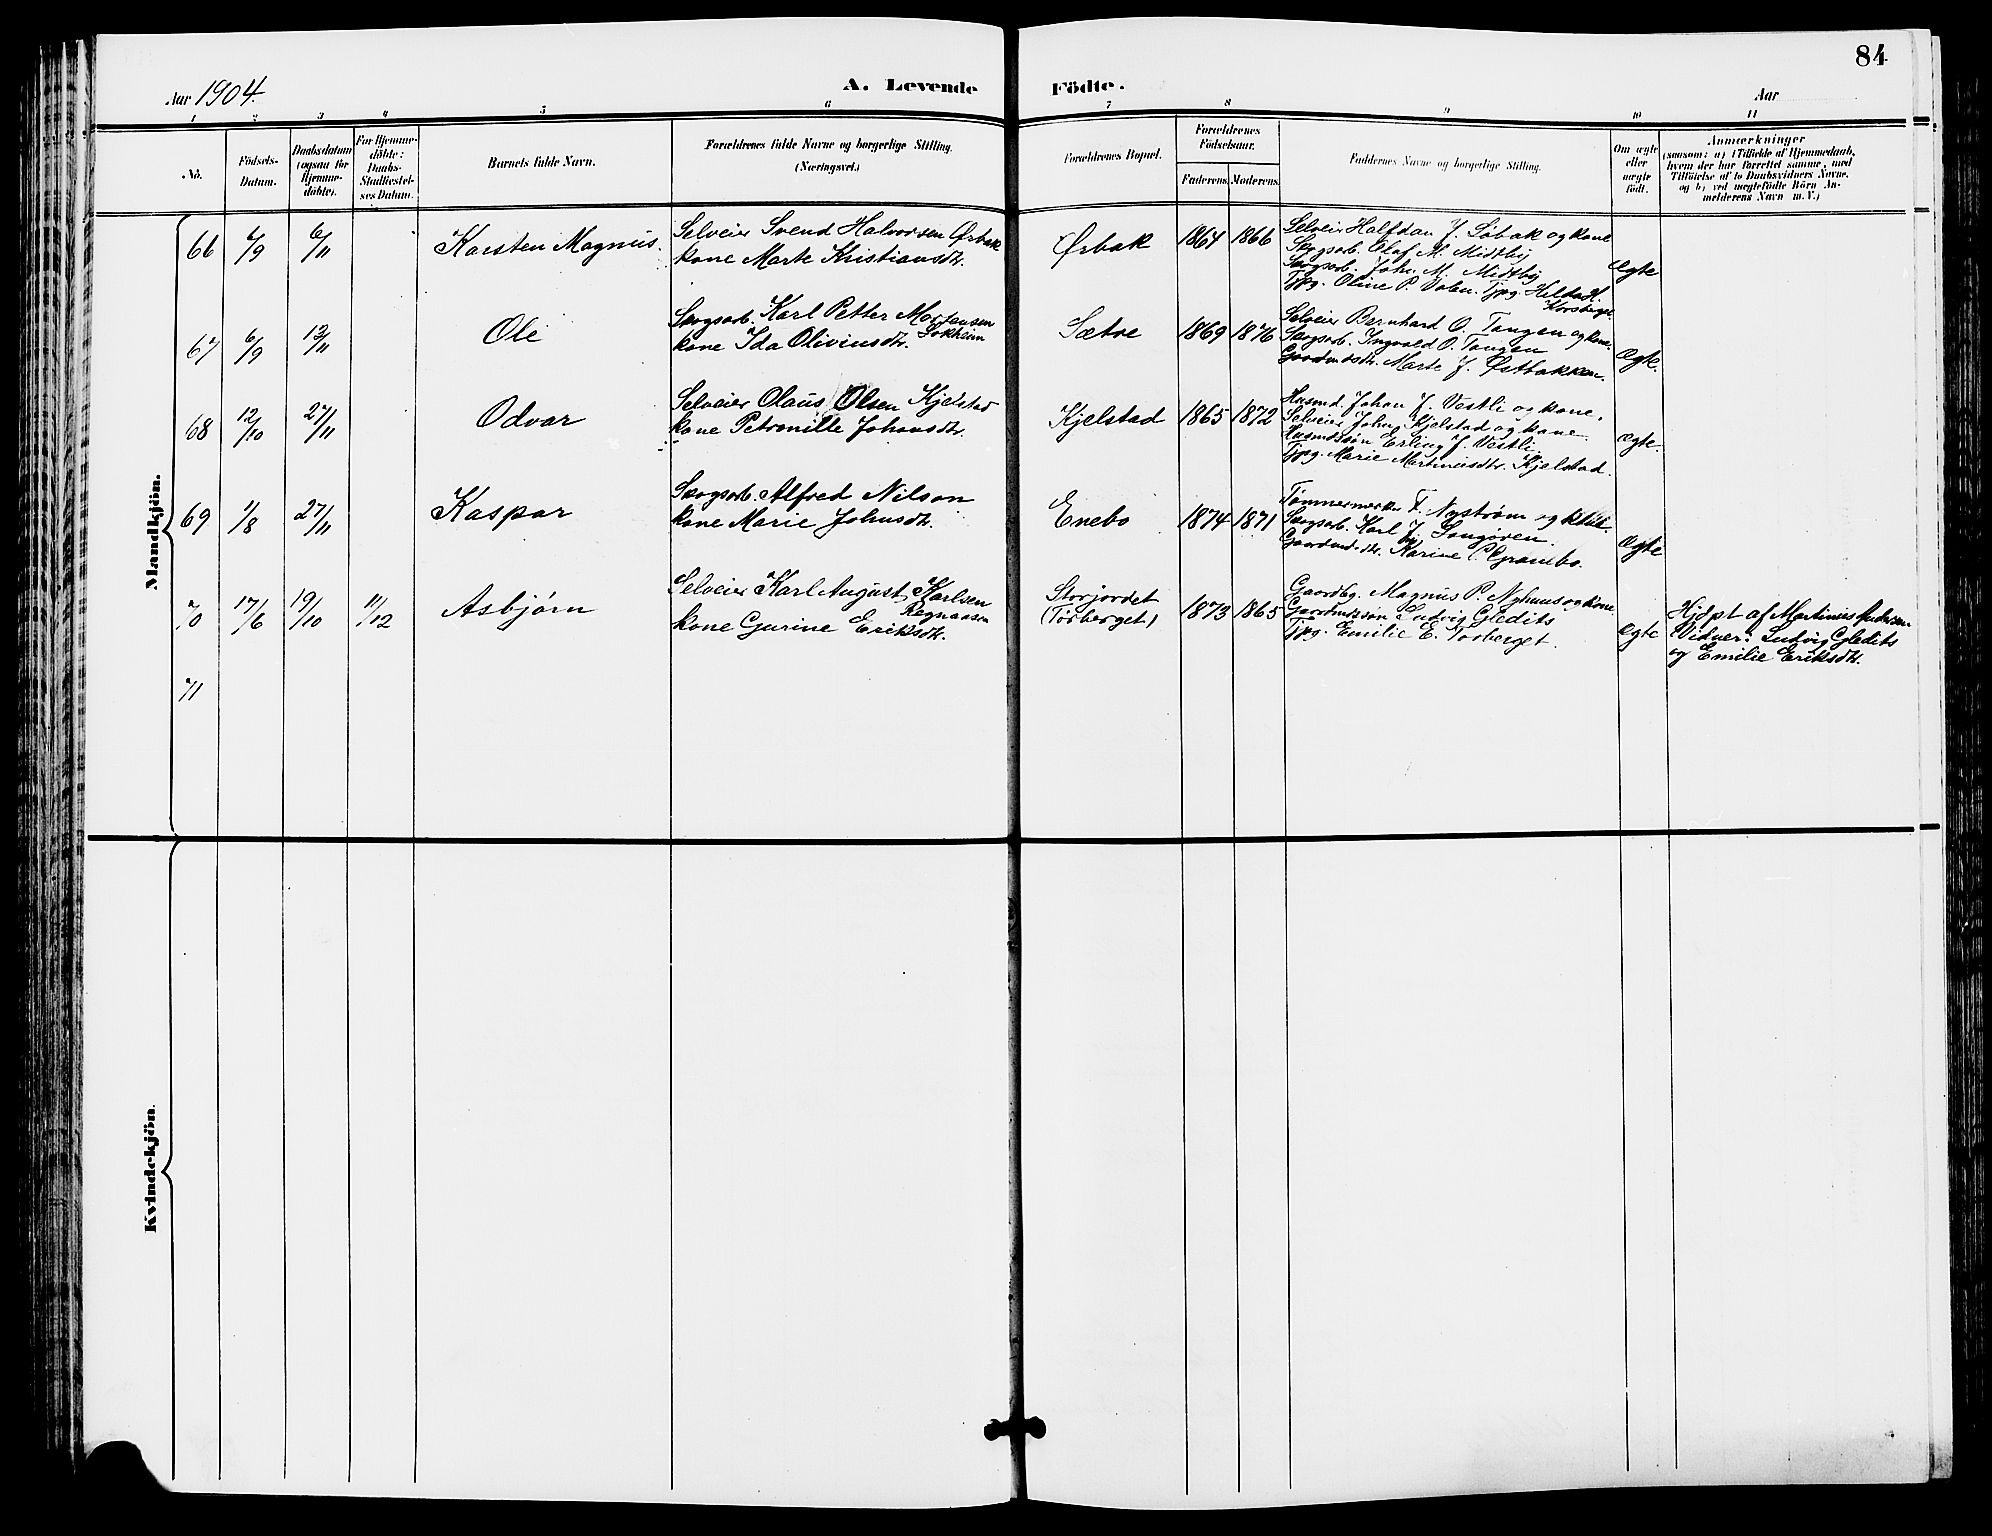 84
Aar 1904.
A. Levende
Födte.
Aar
1 2 3 4 5 6 7 8 9 10 11
No.
Födsels-
Datum.
Daabsdatum
(ogsaa for
Hjemme-
döbte).
For Hjemme-
döbte:
Daabs-
Stadfæstel-
ses Datum.
Barnets fulde Navn.
Forældrenes fulde Navne og borgerlige Stilling.
(Næringsvei.)
Forældrenes Bopæl.
Forældrenes
Födselsaar.
Faderens. Moderens.
Faddernes Navne og borgerlige Stilling.
Om ægte
eller
uægte
födt.
Anmærkninger
(saasom: a) i Tilfælde af Hjemmedaab,
hvem der har forrettet samme, med
Tilföielse af to Daabsvidners Navne,
og b) ved uægtefödte Börn An-
melderens Navn m.V.)
Mandkjön.
66
/9
6/11
Karsten Magnus.
Selveier Svend Halvorsen Ørbak
kone Marte Kristiansdtr.
Ørbak
1864 1866
Selveier Halfdan J. Søbak og kone
Skogsarb. Olaf M. Midtby
Skogsarb. Joh. M. Midtby
Tjpg. Oline P. Valen. Tjpg. Hilda H.
Korsberget
Ægte
67
6/9
13/11
Ole
Skogsarb. Karl Petter Mortensen
kone Ida Oliviusdtr.
Sætre
1869 1876
Selveier Bernhard O. Tangen og kone.
Skogsarb. Ingvald O. Tangen
Gaardmdsdtr. Marte J. Østbakken.
Ægte.
68
12/10
27/11
Odvar
Selveier Olaus Olsen Kjelstad
kone Petronille Johansdtr.
Kjelstad
1865 1872
Husmd. Johan J. Vestli og kone.
Selveier Johan Kjelstad og kone.
Husmdssøn Erling J. Vestli.
Tjpg. Marie Martinusdtr. Kjelstad.
Ægte.
69
1/8
27/11
Kaspar
Skogsarb. Alfred Nilson
kone Marie Johnsdtr.
Enebo
1874 1871
Tømmermerker F. Nystrøm og
Skogsarb. Karl J.
Gaardmd.dtr. Karine C. Grambo.
Ægte
70
17/6
19/10
11/12
Asbjørn
Selveier Karl August Karlsen
Ragnaasen
kone Gurine Eriksdtr.
Storjordet
(Torberget)
1873 1865
Gaardbg. Magnus P. Nyhuus og kone
Gaardmdssøn Ludvig Gledits
Tjpg. Emilie E. Torberget.
Ægte
Hjdpt af Martinius
Vidner: Ludvig Gledits
og Emilie Eriksdtr.
71
Kvindekjön.